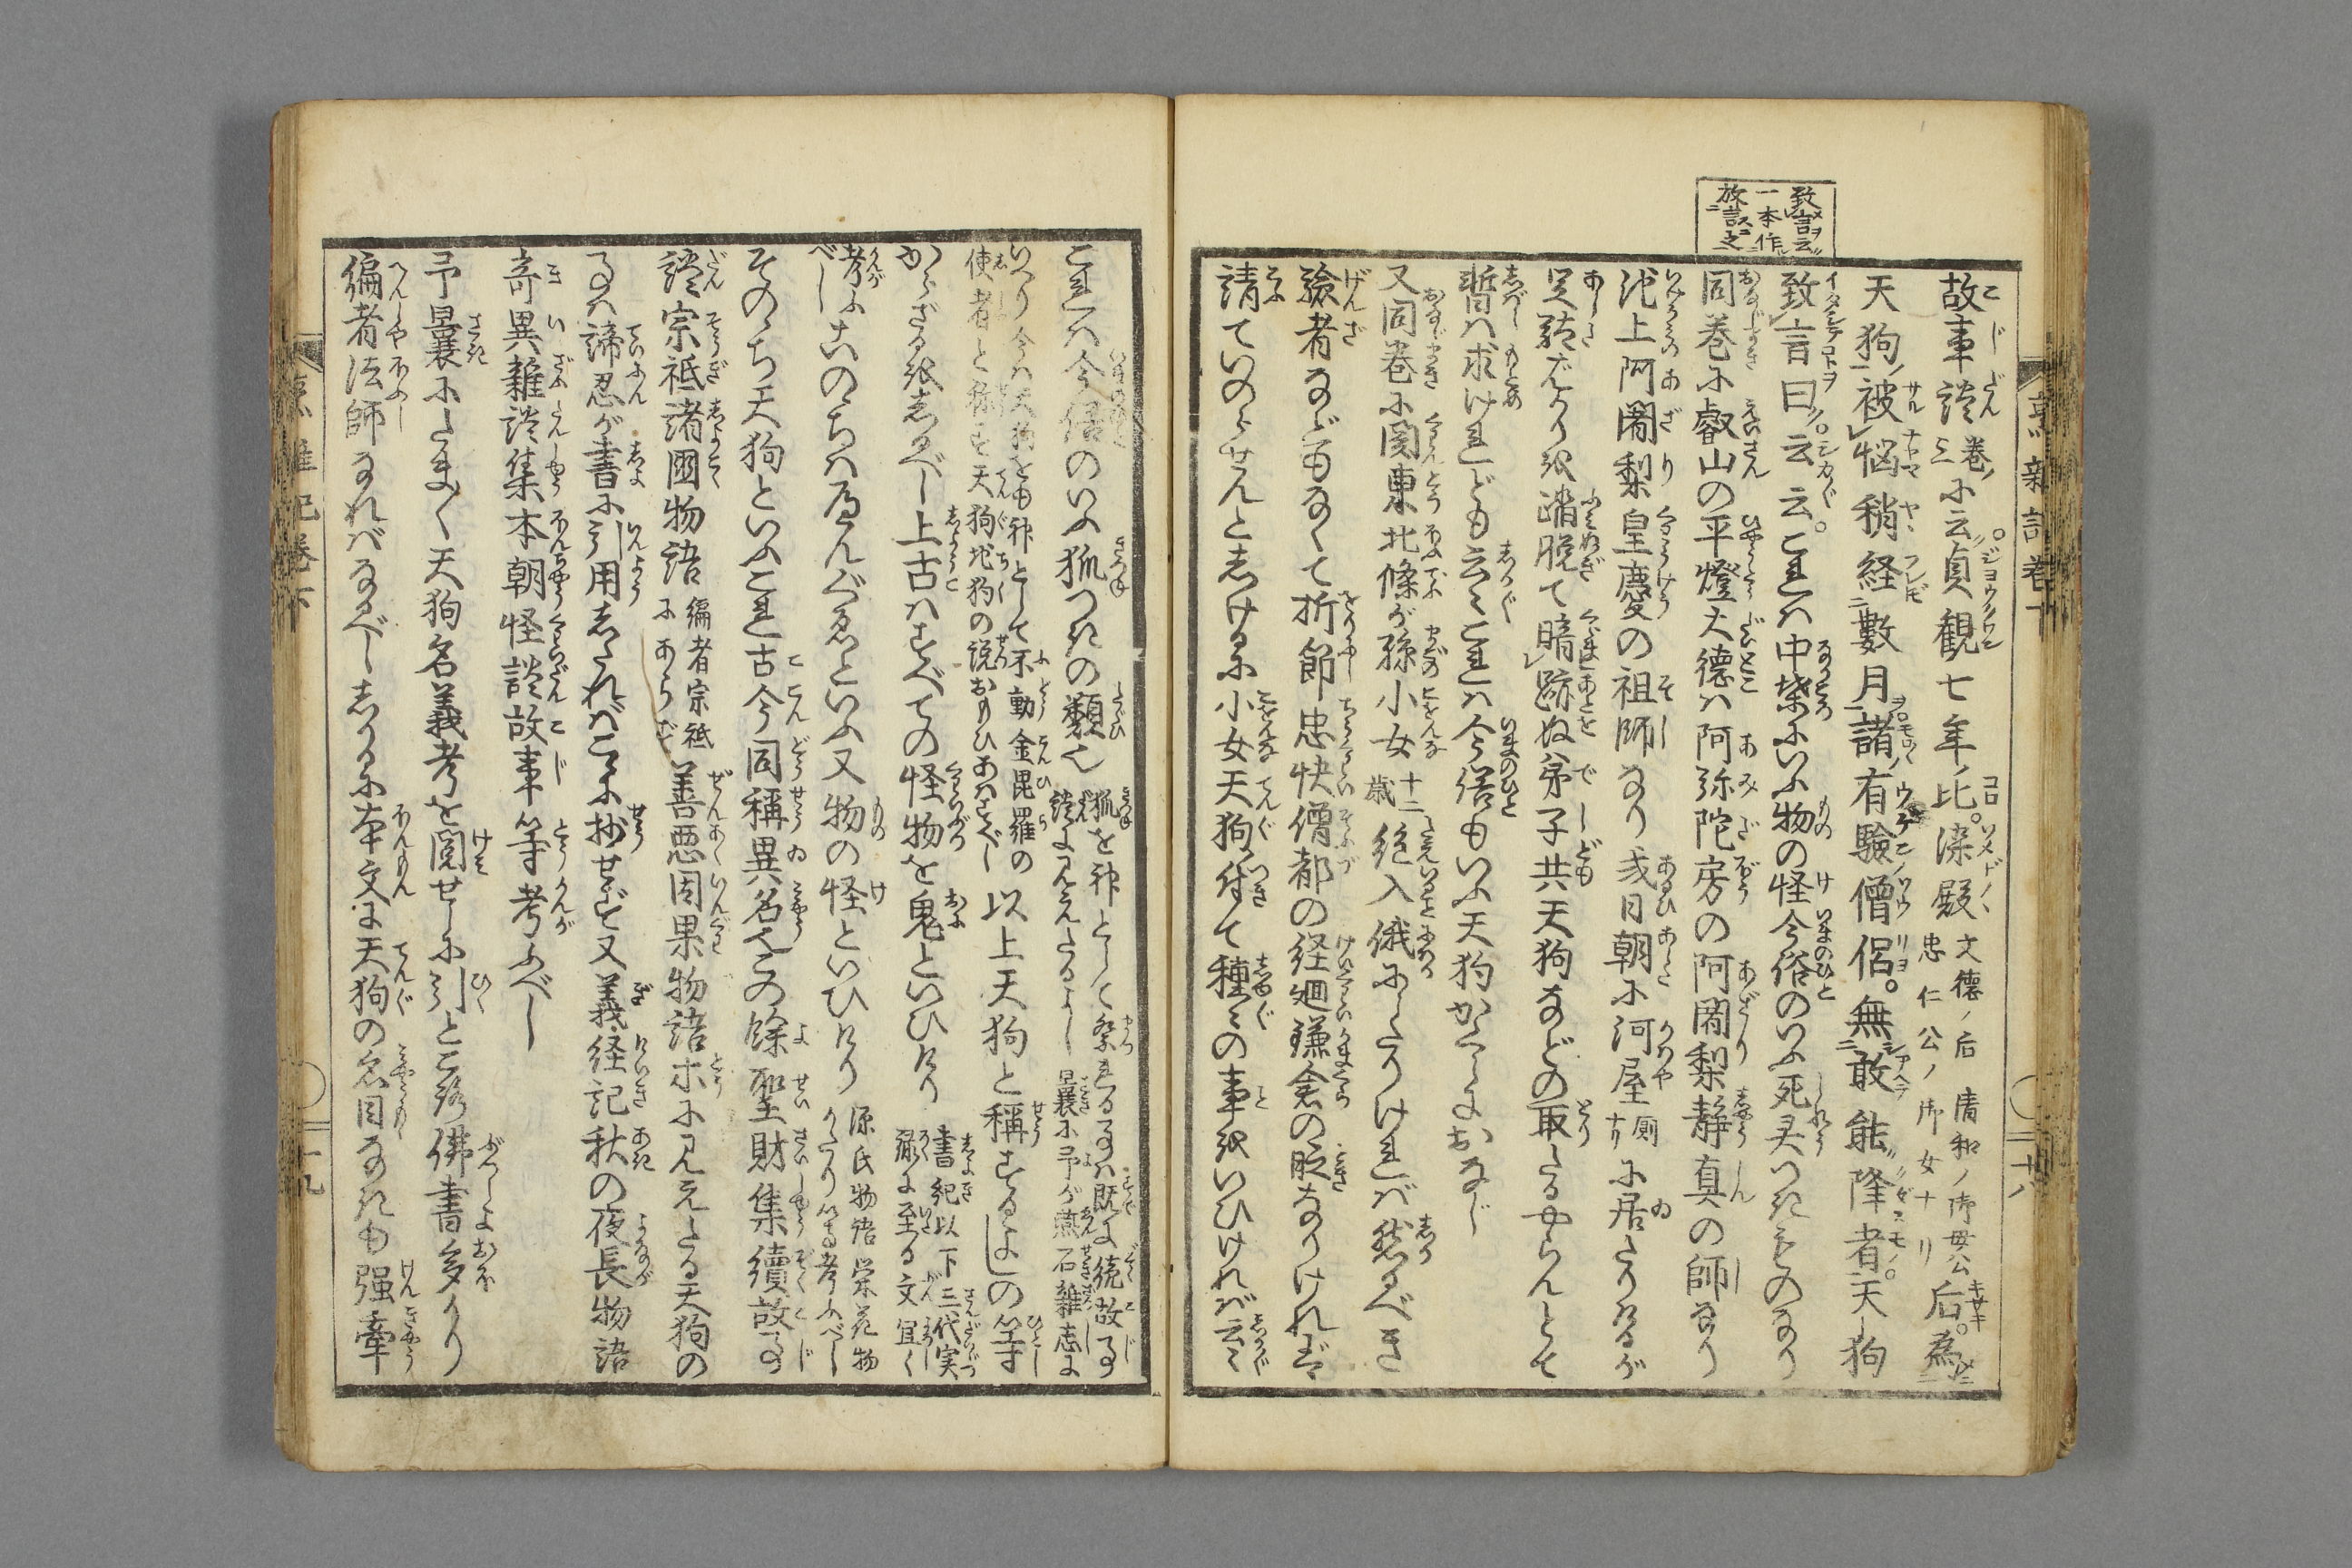 致言云
一本作
放言之
故事談巻三に云貞観七年比。染殿文徳ノ后清和ノ御母公忠仁公ノ御女ナリ后。為
天狗被悩稍経數月諸有驗僧侶。無敢能降者。天狗
致言曰。云云。これハ中葉にいふ物の怪今俗のいふ死灵つきものなり
同巻に叡山の平燈大徳ハ阿弥陀房の阿闍梨静真の師なり
池上阿闍梨皇慶の祖師なり或日朝に河屋厠ナリに居たりけるが
足駄ばかり踏脱て暗跡ぬ弟子共天狗などの取たるやらんとて
暫ハ求けれども云々これハ今俗もいふ天狗かくしにおなじ
又同巻に関東北條が孫小女十二歳絶入俄にしたりけれバ然るべき
驗者などもなくて折節忠快僧都の経廻鎌倉の砌なりけれバ
請ていのらせんとしけるに小女天狗付て種々の事をいひけれバ云々
これハ今俗のいふ狐つきの類也狐を神として祭れる事ハ既に続故事
談に見えたるよし曩に予が燕石雑志に
いへり今ハ天狗をも神として不動金毘羅の
使者と称す天狗地狗の説おもひあハすべし以上天狗と称するよしの等
からざるをしるべし上古ハすべての怪物を鬼といひけり書紀以下三代実
録に至る文宜く
考ふべしそのゝちハへんぐゑといふ又物の怪といひけり源氏物語栄花物
がたり等考ふべし
そのゝち天狗といふこれ古今同稱異名也この餘聖財集續故事
談宗祇諸國物語編者宗祇にあらず善悪因果物語ホに見えたる天狗の
事ハ諦忍が書に引用したれバこゝに抄せず又義経記秋の夜長物語
奇異雜談集本朝怪談故事等考ふべし
予曩にたま〱天狗名義考を閲せしに引ところ佛書多かり
編者法師なれバなるべししかるに本文に天狗の名目なきも强牽